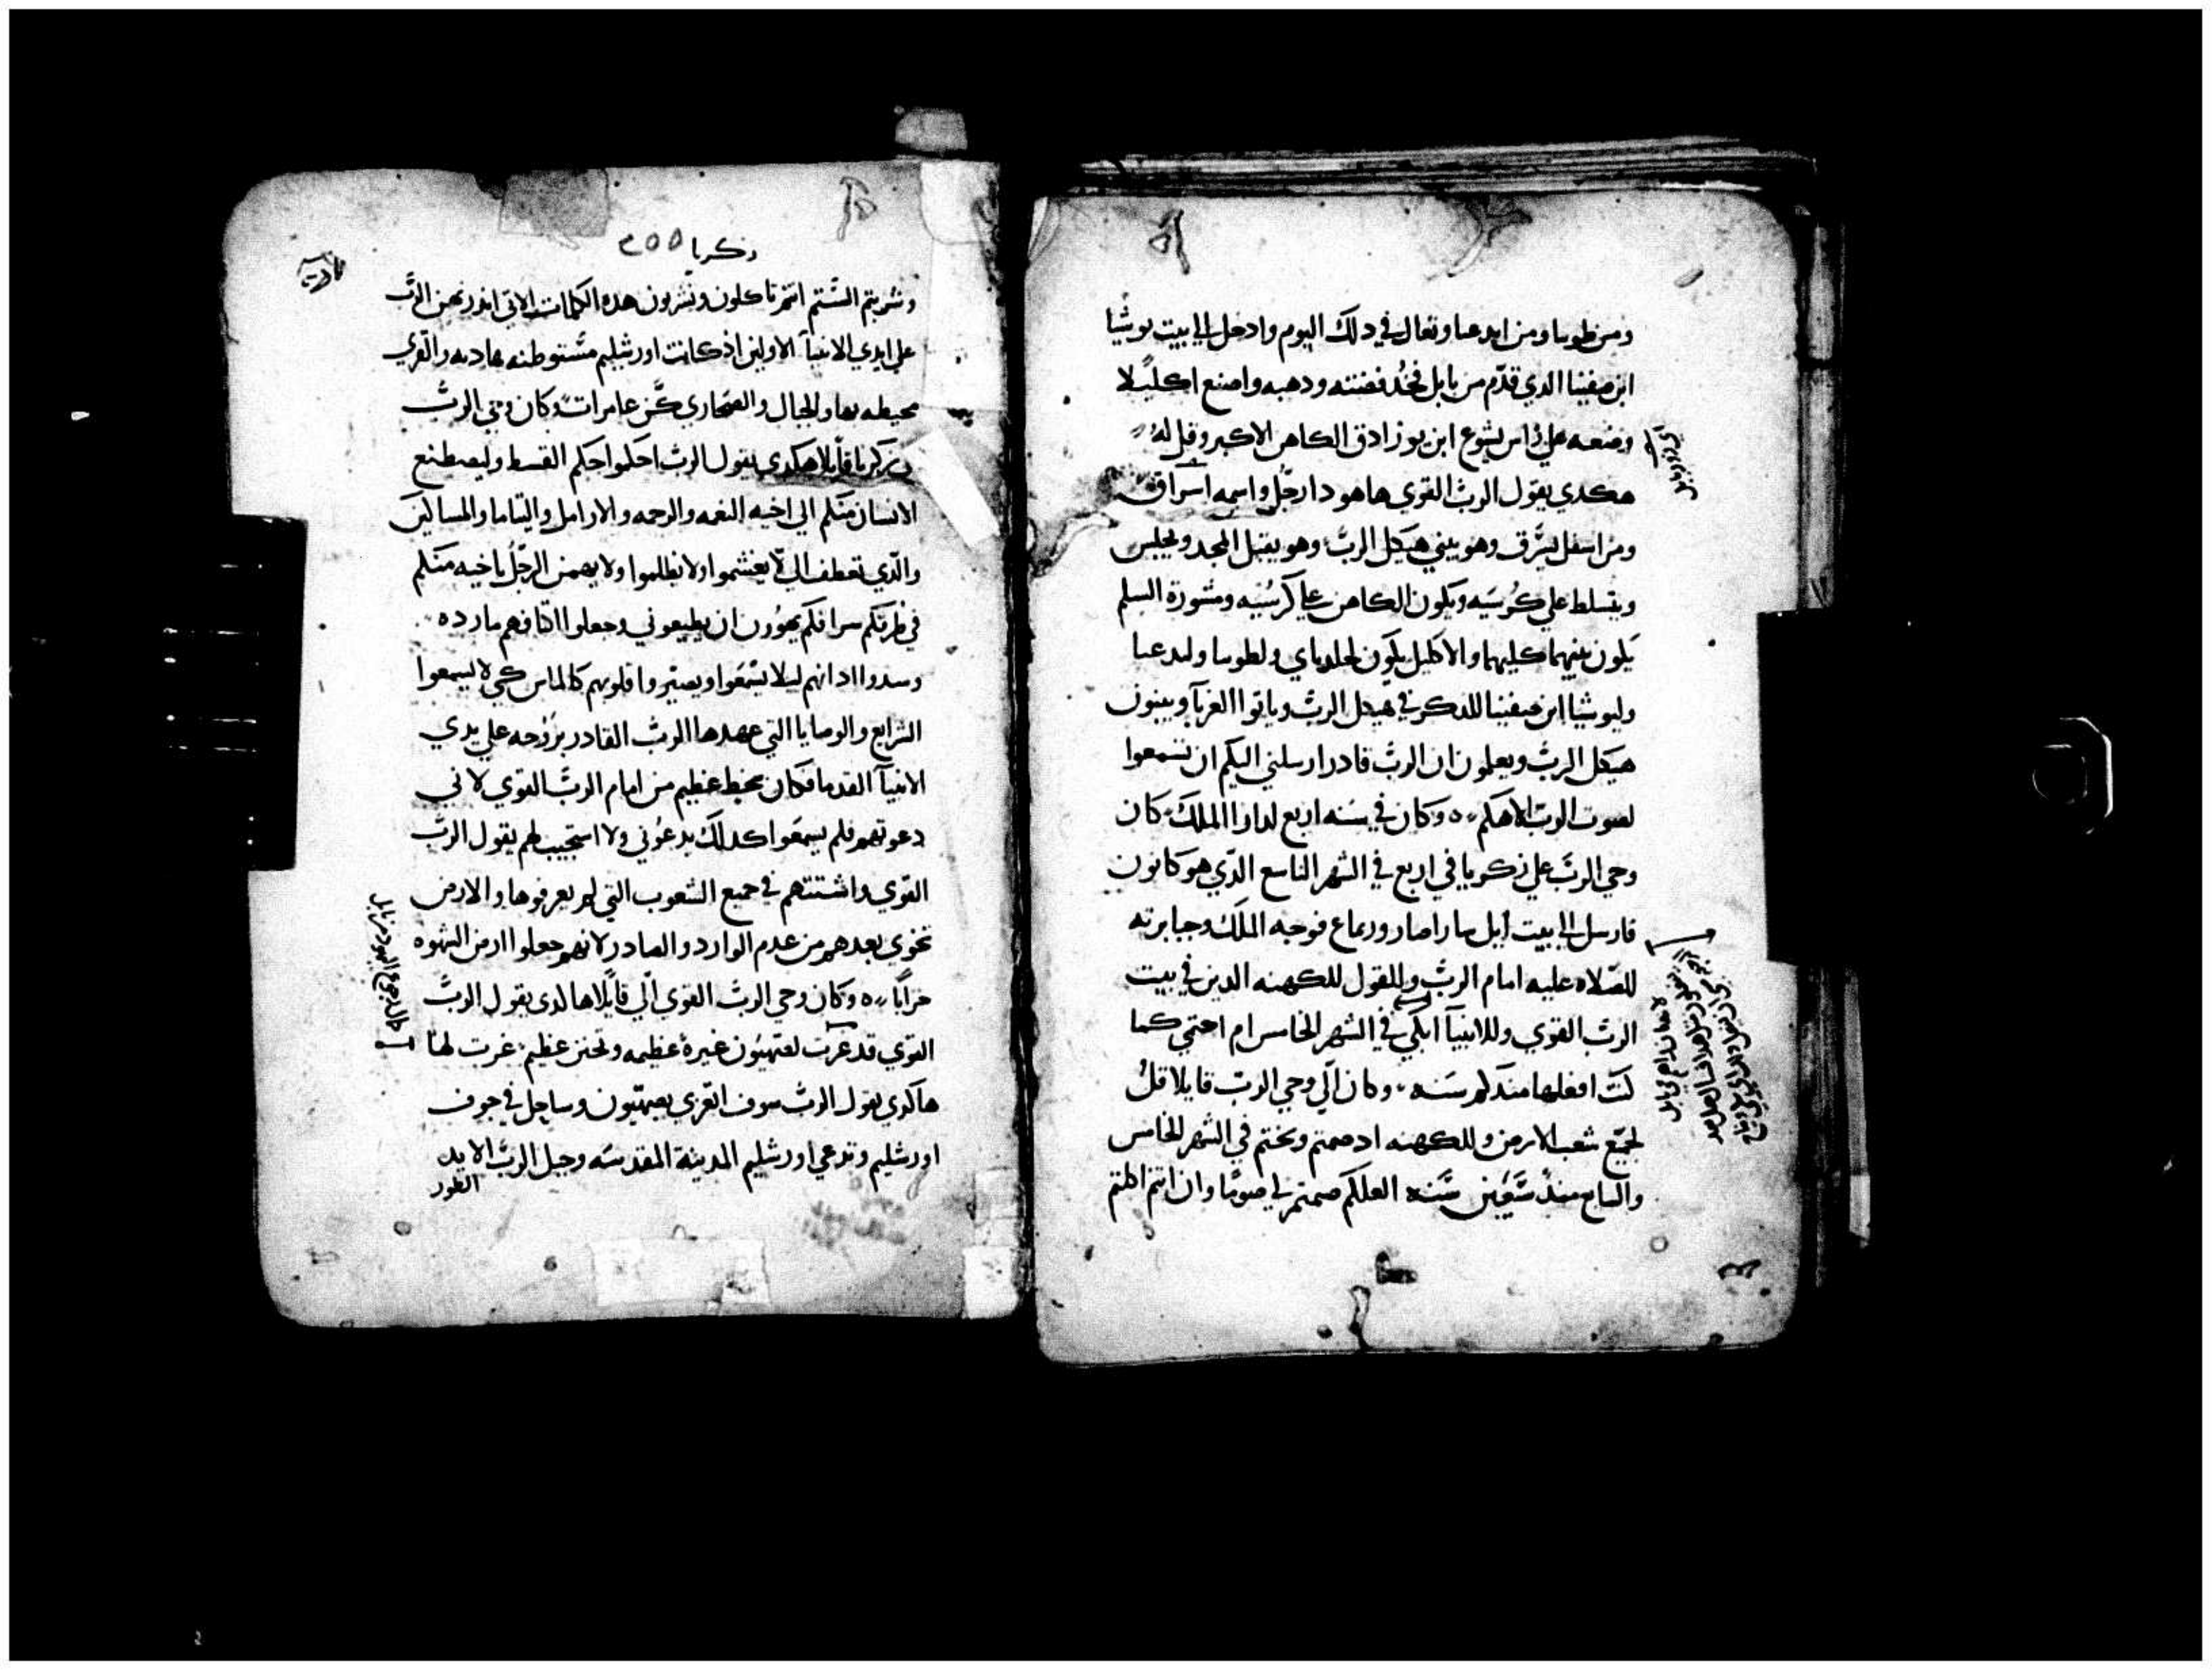 ومن طوبيا ومن ايدعيا وتعال في دلك اليوم وادخل الي بيت يوشيا
ابن صفينا الدي قدّم من بابل فخُد فضته ودهبه واصنع اكليلا
وضعه علي راس يشوع ابن يوزادق الكاهن الاكبر وقل له
هكدي يقول الرب القوي هاهو دا رجُل واسمه اسراق
ومن اسفل يشرق وهو يبني هيكل الرب وهو يقبل المجد ويجلس
ويتسلط علي كرسيه ويكون الكاهن علي كرسيه ومشورة السلم
يكون بينهما كليهما والاكليل يكون لحلدباي ولطوبيا وليدعيا
وليوشيا ابن صفينا للدكر في هيكل الرب وياتوا الغربآ ويبنون
هيكل الرب ويعلمون ان الرب قادر ارسلني اليكم ان تسمعوا
لصوت الرب الاهكم وكان في سنه اربع لدارا الملك كان
وحي الرب علي زكريا في اربع في الشهر التاسع الدي هو كانون
فارسل الي بيت ايل فوجه الملك وجبابرته
للصلاه عليه امام الرب وللقول للكهنه الدين في بيت
الرب القوي وللانبيآ ابكي في الشهر الخامس ام احتمي كما
كنت افعلها مند كم سنه وكان الي وحي الرب قايلا قل
لجميع شعب الارض وللكهنه اد صمتم ونحتم في الشهر الخامس
والسابع مند سبعين سنه العلكم صمتم لي صوما وان انتم اكلتم
زكريا ٢٥٥
وشربتم الستم انتم تاكلون وتشربون هده الكلمات الاتي اندر بهن الرب
علي ايدي الانبيآ الاولين اذ كانت اورشليم مستوطنه هاديه والقري
محيطه بها والجبال والصحاري كن عامرات وكان وحي الرب
زكريا قايلا هكدي يقول الرب احكموا حكم القسط وليصطنع
الانسان منكم الي اخيه النعمه والرحمه والارامل واليتاما والمساكين
والدي تعطف الي لا يغشموا ولا يظلموا ولا يهمن الرجل باخيه منكم
ان يطيعوني وجعلوا اكتافهم مارده
وسدوا ادانهم ليلا يسمعوا وصيروا قلوبهم كالماس كي لا يسمعوا
الشرايع والوصايا التي عهدها الرب القادر بروحه علي يدي
الانبيآ القدما فكان سخط عظيم من امام الرب القوي لاني
دعوتهم فلم يسمعوا كدلك يدعوني ولا استجيب لهم يقول الرب
القوي واشتتهم في جميع الشعوب التي لم يعرفوها والارض
تخوي بعدهم من عدم الوارد والصادر لانهم جعلوا ارض الشهوه
خرابا وكان وحي الرب القوي الي قايلا هاكدي يقول الرب
القوي قد غرت لصهيون غيرة عظيمه وتحنن عظيم غرت لها
هاكدي يقول الرب سوف اتعزي بصهيون وساحل في جوف
اورشليم وتدعي اورشليم المدينة المقدسه وجبل الرب الايد
الطور